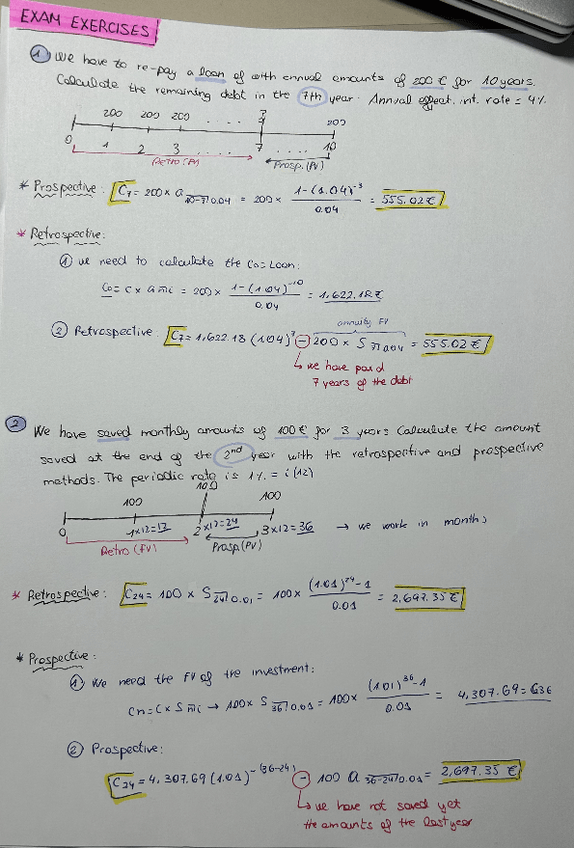 EXAM EXERCISES
① We have to re-pay a loan of with annual amounts of 200 € for 10 years.
Calculate the remaining debt in the 7th year. Annual effect. int. rate = 4%
200 200 200 .... 7 200
0 1 2 3 .... 7 .... 10
Retro (FV) Prosp. (PV)
* Prospective: C7 = 200 × a 10-7|0.04 = 200 × (1-(1.04)^-3)/0.04 = 555.02 €
* Retrospective:
① We need to calculate the C0 = Loan:
C0 = C × a n|i = 200 × (1-(1.04)^-10)/0.04 = 1,622.18 €
annuity FV
② Retrospective C7 = 1,622.18 (1.04)^7 - 200 × S 7|0.04 = 555.02 €
↳ we have paid
7 years of the debt
② We have saved monthly amounts of 100 € for 3 years. Calculate the amount
saved at the end of the 2nd year with the retrospective and prospective
methods. The periodic rate is 1% = i(12)
100 100 100
0 1×12=12 2×12=24 3×12=36 → we work in months
Retro (FV) Prosp. (PV)
* Retrospective: C24 = 100 × S 24|0.01 = 100 × ((1.01)^24 - 1)/0.01 = 2,697.35 €
* Prospective:
① We need the FV of the investment:
Cn = C × S n|i → 100 × S 36|0.01 = 100 × ((1.01)^36 - 1)/0.01 = 4,307.69 = C36
② Prospective:
C24 = 4,307.69 (1.01)^-(36-24) - 100 a 36-24|0.01 = 2,697.35 €
↳ we have not saved yet
the amounts of the last year